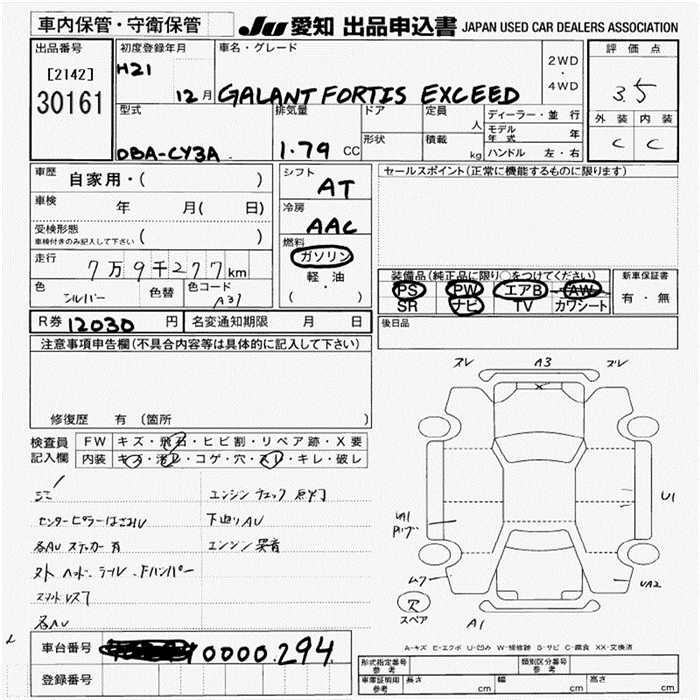 車内保管・守衛保管
JU 愛知 出品申込書 JAPAN USED CAR DEALERS ASSOCIATION
出品番号
[2142]
30161
初度登録年月
H21
12月
車名・グレード
GALANT FORTIS EXCEED
2WD
・
4WD
評価点
3.5
外装 内装
C C
型式
DBA-CY3A
排気量
1.79 CC
ドア
形状
定員
人
積載
kg
ディーラー・並行
モデル年式 年
ハンドル 左・右
車歴 自家用・( )
車検 年 月( 日)
受検形態
車検付きのみ記入して下さい ( )
走行 7万9千277km
色 シルバー 色替 色コード A31
シフト
AT
冷房
AAC
燃料
ガソリン
軽・油
( ・ )
セールスポイント(正常に機能するものに限ります)
装備品(純正品に限り○をつけてください)
PS PW エアB AW
SR ナビ TV カワシート
新車保証書
有・無
後日品
R券 12030 円 名変通知期限 月 日
注意事項申告欄(不具合内容等は具体的に記入して下さい)
修復歴 有(箇所 )
検査員
記入欄
FW キズ・飛石・ヒビ割・リペア跡・X要
内装 キズ・汚レ・コゲ・穴・スレ・キレ・破レ
エンジンチェック点灯
下廻りAU
エンジン異音
各AU ステッカー有
各AU
ズレ A3 ズレ
U1
UA1
ムク
UA2
穴
スペア
A1
A-キズ E-エクボ U-凹み W-補修跡 S-サビ C-腐食 XX-交換済
車台番号 0000294
登録番号
形式指定番号
参考
類別区分番号
参考
車庫証明用
参考
長さ cm 幅 cm 高さ cm